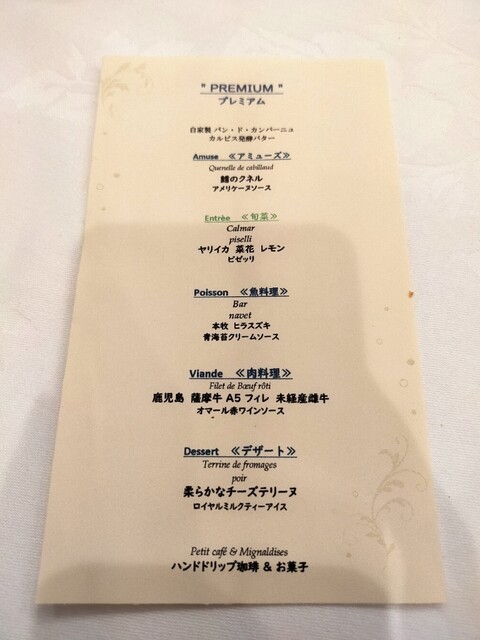 " PREMIUM "
プレミアム
自家製 パン・ド・カンパーニュ
カルピス発酵バター
Amuse ≪アミューズ≫
Quenelle de cabillaud
鱈のクネル
アメリケーヌソース
Entrèe ≪旬菜≫
Calmar
piselli
ヤリイカ 菜花 レモン
ピゼッリ
Poisson ≪魚料理≫
Bar
navet
本牧 ヒラスズキ
青海苔クリームソース
Viande ≪肉料理≫
Filet de Bœuf rôti
鹿児島 薩摩牛 A5 フィレ 未経産雌牛
オマール赤ワインソース
Dessert ≪デザート≫
Terrine de fromages
poir
柔らかなチーズテリーヌ
ロイヤルミルクティーアイス
Petit café & Mignaldises
ハンドドリップ珈琲 & お菓子